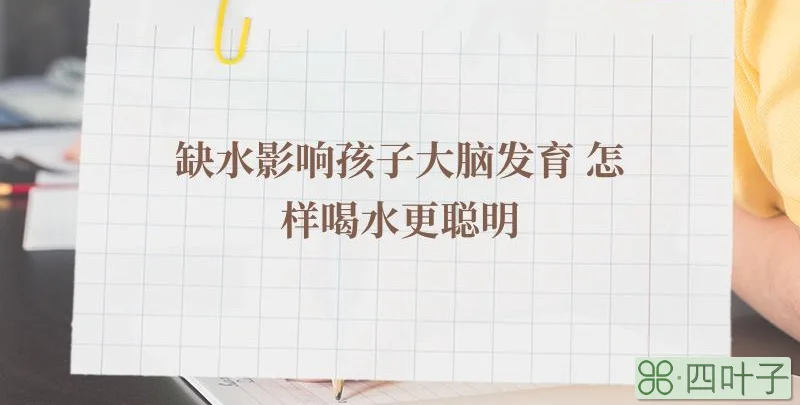 缺水影响孩子大脑发育 怎
样喝水更聪明
四叶子